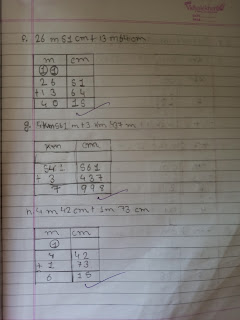 f. 26 m 51 cm + 13 m 64 cm
m | cm
① ①
26 51
+13 64
40 15
m + 3 km m
km | cm
561
+ 3 437
7 998
h. 4 m 42 cm + 1m 73 cm
m | cm
①
4 42
+ 1 73
6 15